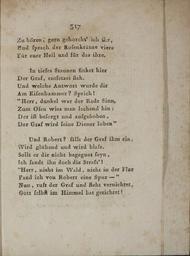 317
Zu hören, gern gehorch' ich ihr,
Und sprach der Rosenkränze viere
Für euer Heil und für das ihre.
In tiefes Staunen sinket hier
Der Graf, entsetzet sich.
Und welche Antwort wurde dir
Am Eisenhammer? Sprich!
"Herr, dunkel war der Rede Sinn,
Zum Ofen wies man lachend hin:
Der ist besorgt und aufgehoben,
Der Graf wird seine Diener loben"
Und Robert? fällt der Graf ihm ein,
Wird glühend und wird blass.
Sollt er dir nicht begegnet seyn,
Ich sandt ihn doch die Strass'!
"Herr, nicht im Wald, nicht in der Flur
Fand ich von Robert eine Spur —"
Nun, ruft der Graf und steht vernichtet,
Gott selbst im Himmel hat gerichtet!